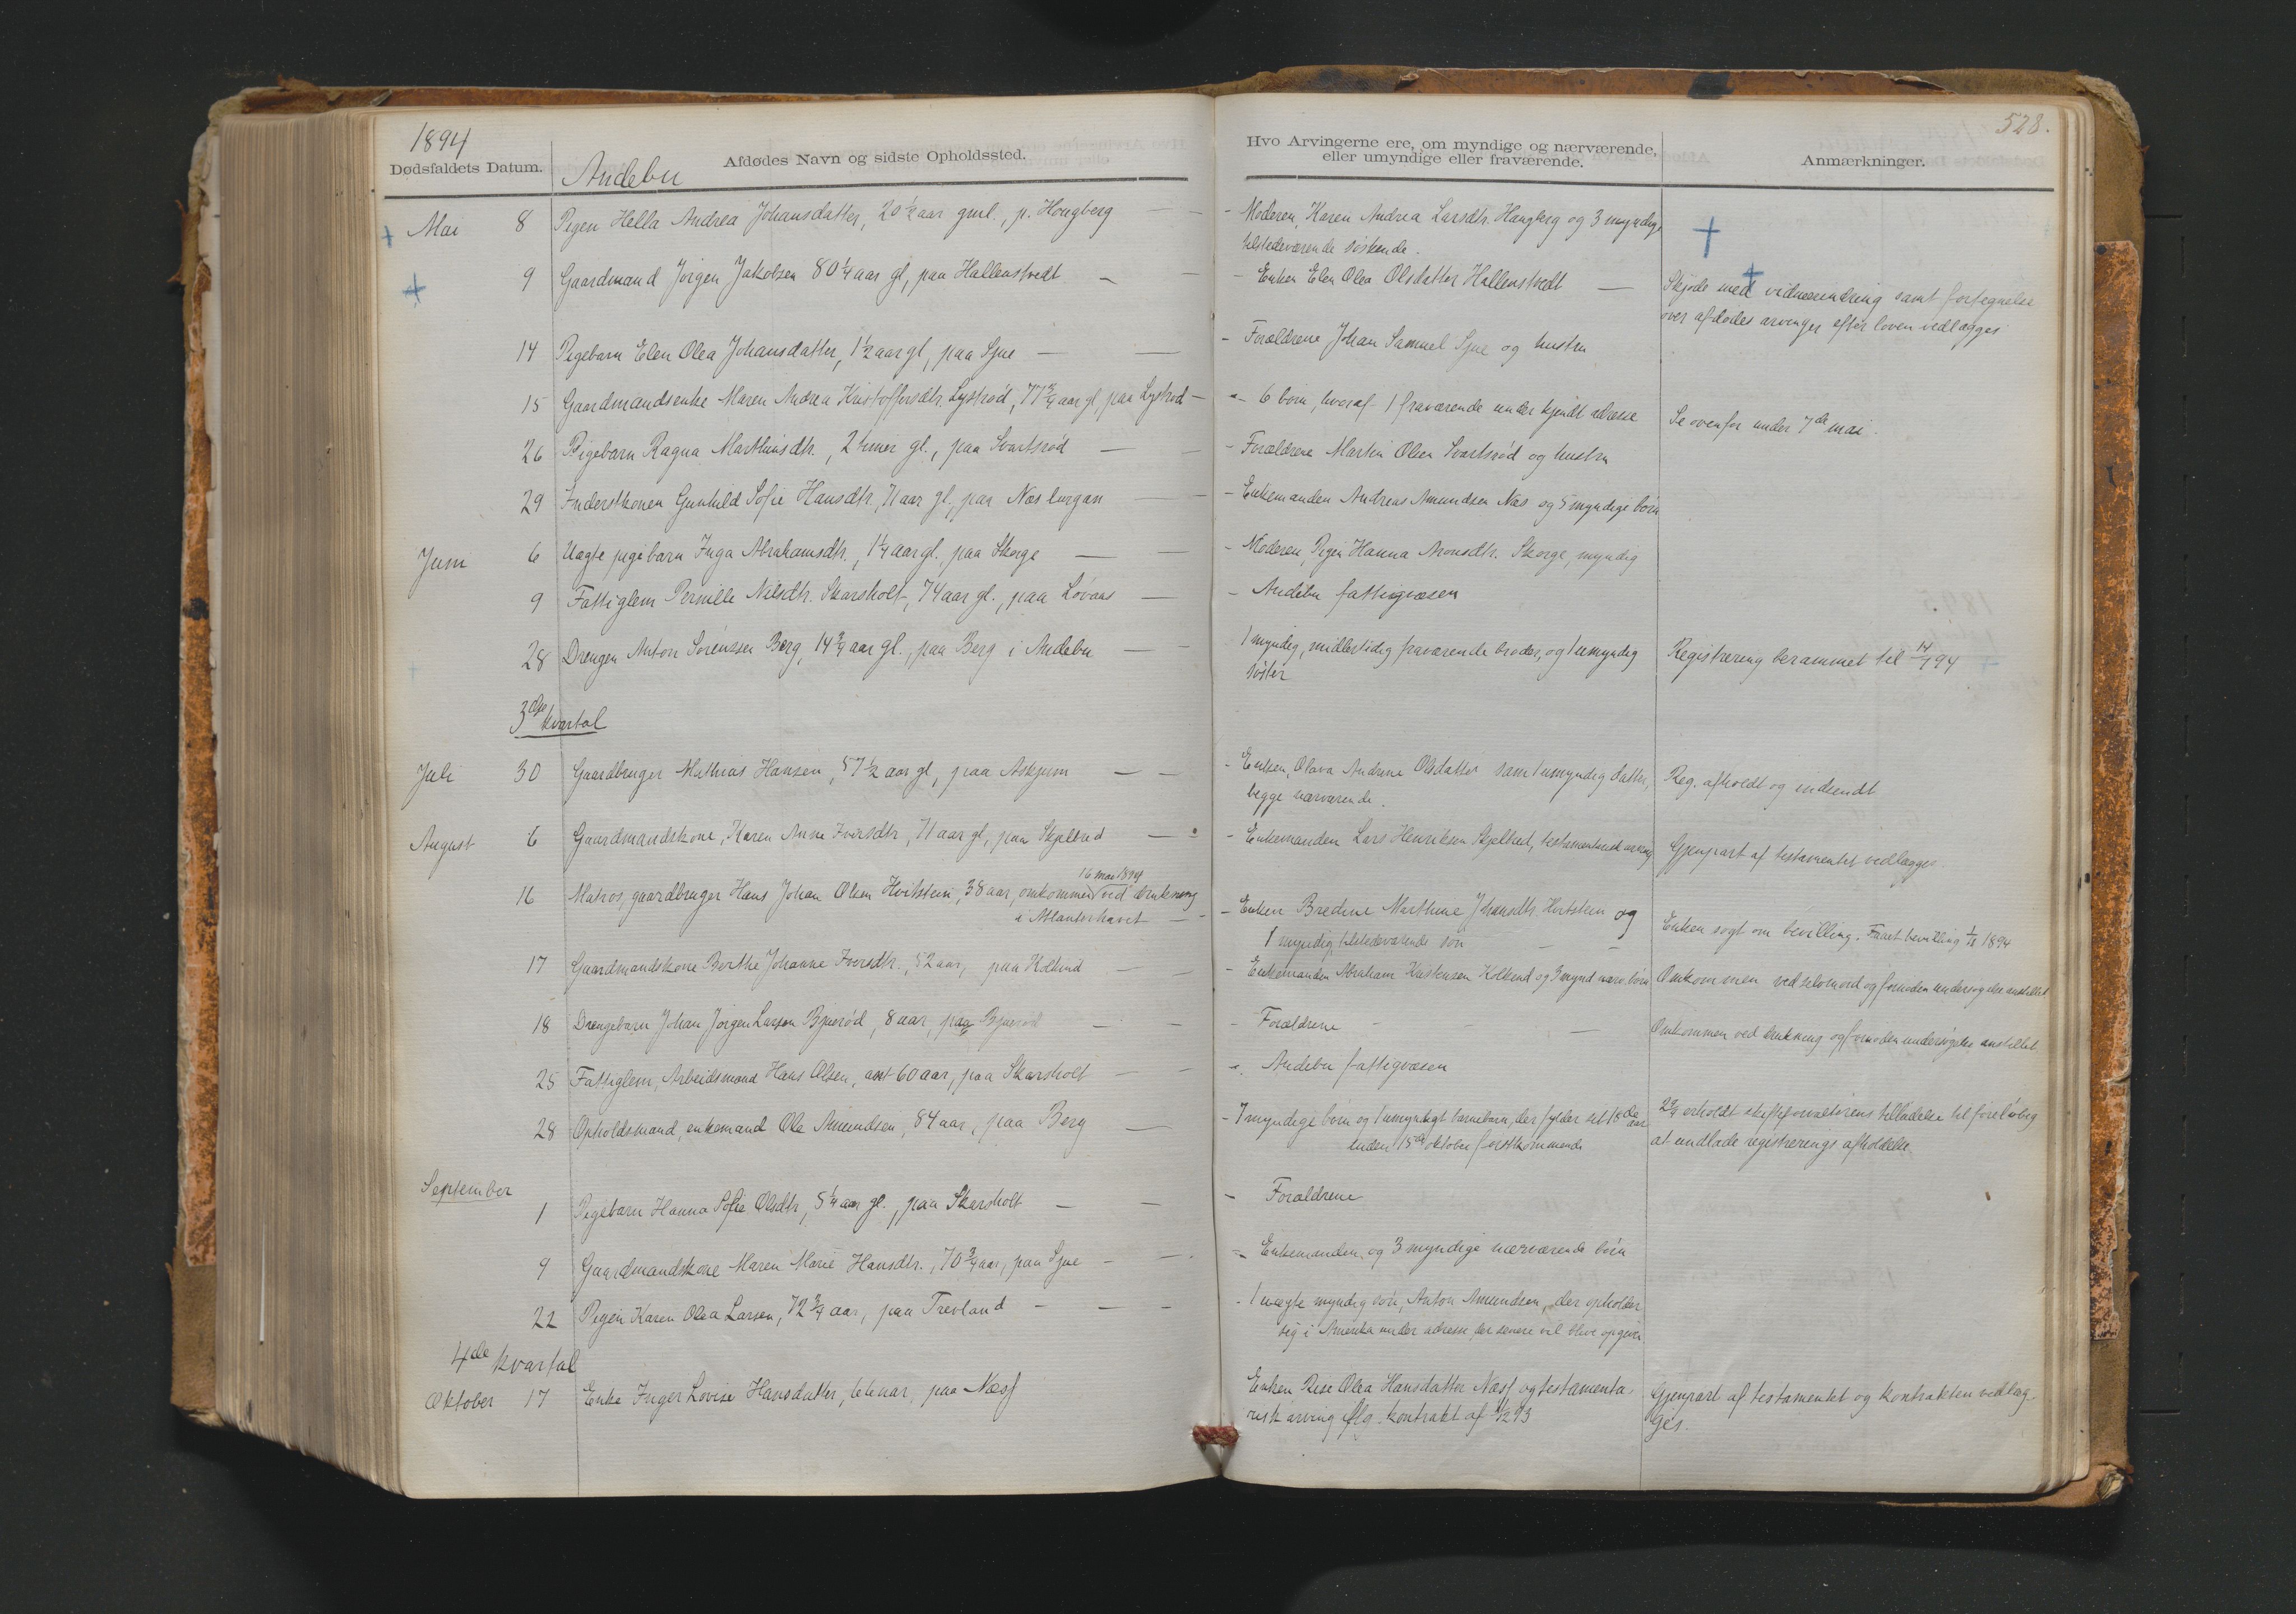 1894
Dødsfaldets Datum.
Andebu
Afdødes Navn og sidste Opholdssted.
Hvo Arvingerne ere, om myndige og nærværende,
eller umyndige eller fraværende.
Anmærkninger.
528.
Mai 8 Pigen Hella Andrea Johansdatter, 20 aar gml., p. Hougberg
- Moderen, Karen Andrea Larsdtr. Haugberg og 3 myndige
tilstedeværende söskende.
9 Gaardmand Jörgen Jakobsen 80 1/4 aar gl, paa Hallenstvedt
- Enken Elen Olea Olsdatter Hallenstvedt
Skjöde med vidneændring samt fortegnelse
over afdödes arvinger efter loven vedlægges
14 Pigebarn Elen Olea Johansdatter, 1 1/2 aar gl, paa Sjue
- Forældrene Johan Samuel Sjue og hustru
15 Gaardmandsenke Maren Andrea Kristoffersdtr. Lystrød, 77 3/4 aar gl, paa Lystrød
- 6 börn, hvoraf 1 fraværende under kjendt adresse
Se ovenfor under 7de mai.
26 Pigebarn Ragna Marthinsdtr., 2 timer gl., paa Svartsrød
- Forældrene Martin Olsen Svartsrød og hustru
29 Inderstkonen Gunhild Sofie Hansdtr., 71 aar gl., paa Næs
- Enkemanden Andreas Amundsen Næs og 5 myndige börn
Juni 6 Uægte pigebarn Inga Abrahamsdtr., 1 1/4 aar gl. paa Skorge
- Moderen, Pigen Hanna Aronsdtr. Skorge, myndig
9 Fattiglem Pernille Nilsdtr. Skarsholt, 74 aar gl., paa Lövaas
- Andebu fattigvæsen
28 Drengen Anton Sörenssen Berg, 14 3/4 aar gl., paa Berg i Andebu
1 myndig, midlertidig fraværende broder, og 1 umyndig
söster
Registrering berammet til 14/7 94
3die kvartal
Juli 30 Gaardbruger Mathias Hansen, 57 1/2 aar gl, paa Askjem
- Enken, Olava Andrine Olsdatter samt 1 umyndig datter,
begge nærværende.
Reg. afholdt og indsendt
August 6 Gaardmandskone, Karen Anne Iversdtr, 71 aar gl, paa Skjelbred
- Enkemanden Lars Henriksen Skjelbred, testamentarisk arving
Gjenpart af testamentet vedlægges.
16 Matros, gaardbruger Hans Johan Olsen Hvitstein, 38 aar, omkommen 16 mai 1894 ved drukning
i Atlanterhavet
- Enken Bredine Marthine Johansdtr. Hvitstein og
1 myndig tilstedeværende sön
Enken sögt om bevilling. Faaet bevilling 1894
17 Gaardmandskone Berthe Johanne Iversdtr., 52 aar, paa Kolkind
- Enkemanden Abraham Kristensen Kolkind og 3 mynd nærv. börn
Omkommen ved selvmord og fornöden undersögelse anstillet
18 Drengebarn Johan Jörgen Larsen Bjuerød, 8 aar, paa Bjuerød
- Forældrene
Omkommen ved drukning og fornöden undersögelse anstillet
25 Fattiglem, Arbeidsmand Hans Olsen, ant 60 aar, paa Skarsholt
- Andebu fattigvæsen
28 Opholdsmand, enkemand Ole Amundsen, 84 aar, paa Berg
- 7 myndige börn og 1 umyndigt barnebarn, der fylder sit 18de aar
inden 15de oktober förstkommende
erholdt skifteforvalterens tilladelse til forelöbig
at undlade registrerings afholdelse
September
1 Pigebarn Hanna Sofie Olsdtr, 5 1/4 aar gl., paa Skarsholt
- Forældrene
9 Gaardmandskone Maren Marie Hansdtr., 70 3/4 aar, paa Sjue
- Enkemanden og 3 myndige nærværende börn
22 Pigen Karen Olea Larsen, 72 3/4 aar, paa Trevland
- 1 uægte myndig sön, Anton Amundsen, der opholder
sig i Amerika under adresse, der senere vil blive opgivet
4de kvartal
Oktober 17 Enke Inger Lovise Hansdatter, aar, paa Næss
Enken Olea Hansdatter Næss og testamenta-
risk arving flg. kontrakt af
Gjenpart af testamentet og kontrakten vedlæg-
ges.